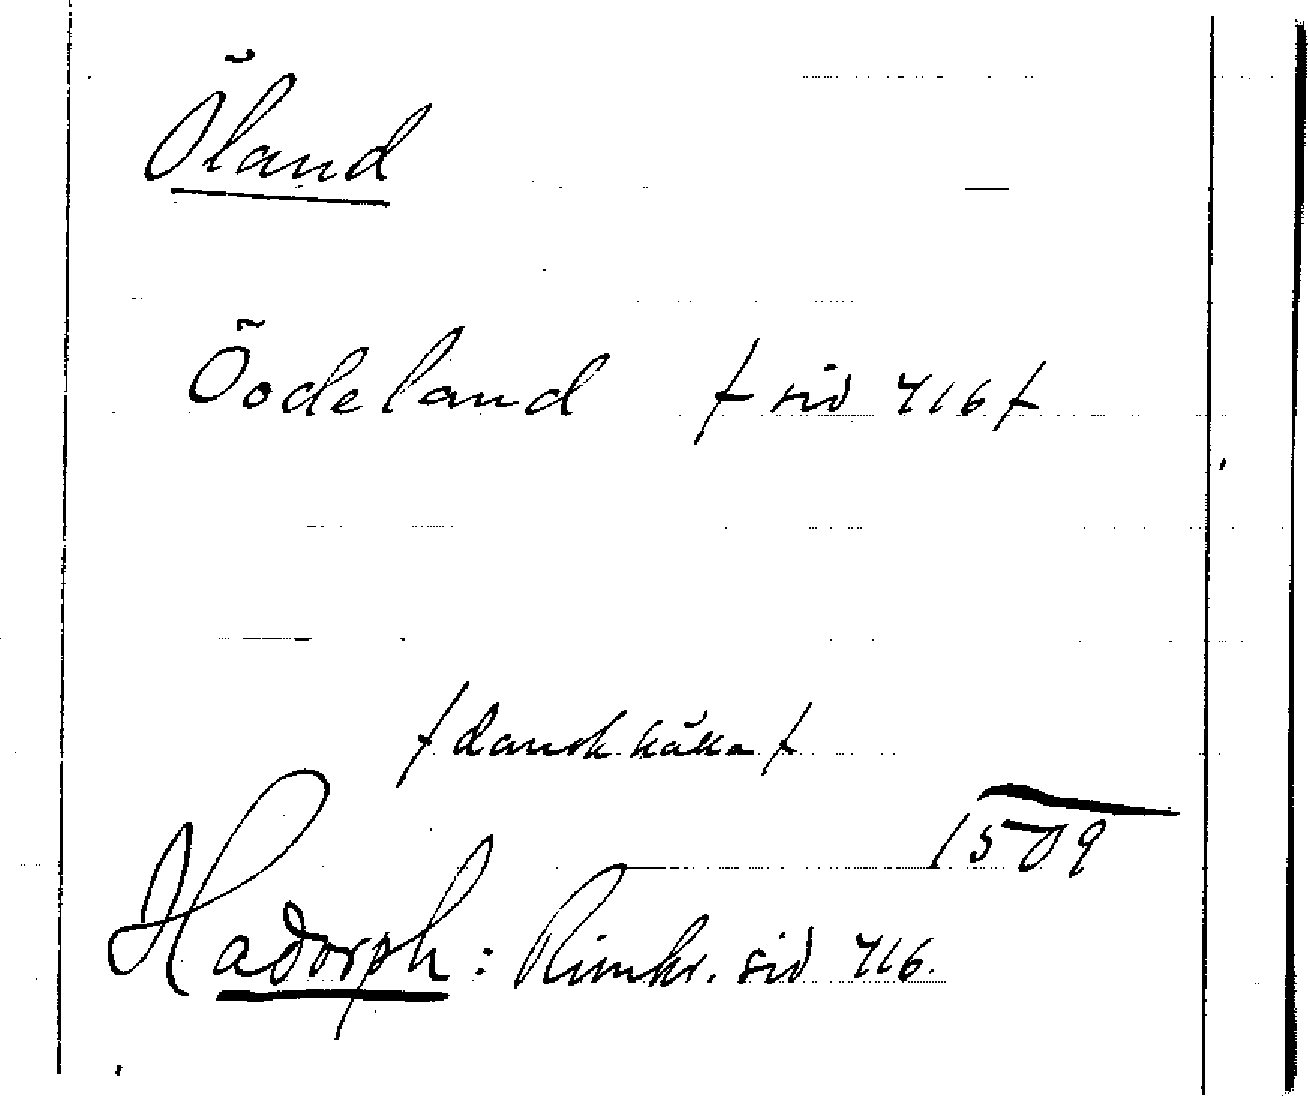 Öland
Öodeland / sid 416 /
/ dansk källa /
1509
Hadorph: Rimkr. sid 416.